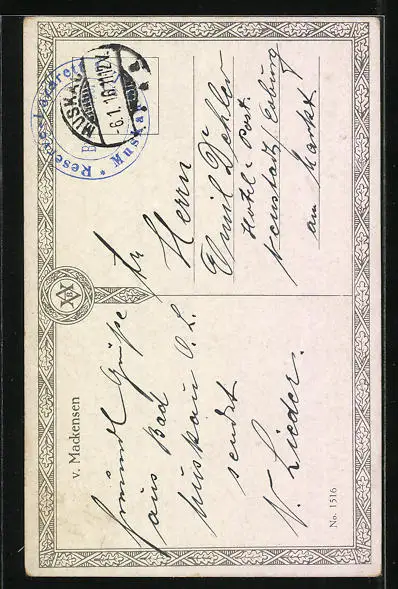 v. Mackensen
freundl. Grüße
aus Bad
Muskau O. L.
sendet
N. Lieder.
No. 1516
MUSKAU
-6.1.16.11-12V.
* Reservelazarett * Muskau
An
Herrn
Emil Dehler
Hotel-Post.
Neustadt/Coburg
am Markt